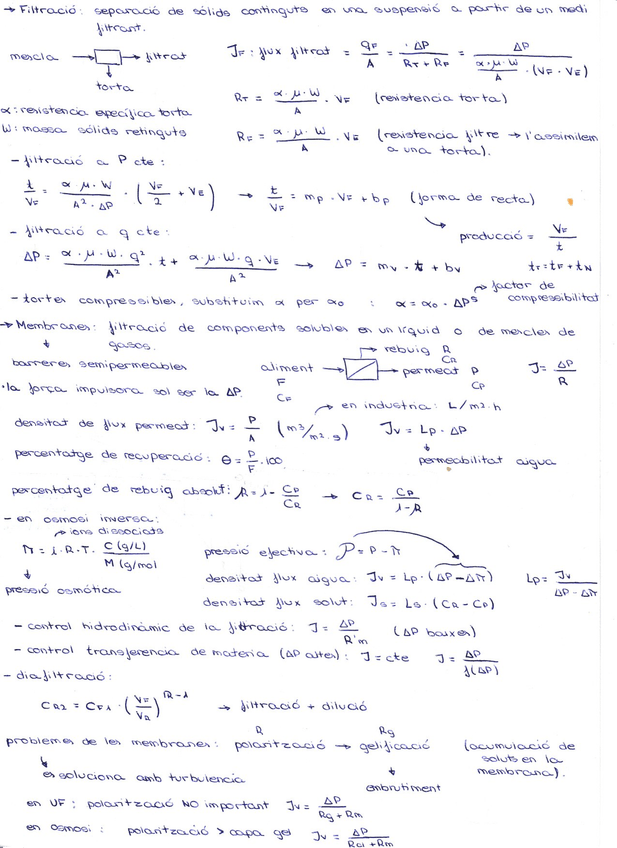 → Filtració: separació de sòlids continguts en una suspensió a partir de un medi
filtrant.
mescla → → filtrat
torta
J_F: flux filtrat = q_F/A = ΔP/(R_T + R_F) = ΔP/((α·μ·W/A)·(V_F · V_E))
R_T = (α·μ·W/A) · V_F (resistencia torta)
α: resistencia específica torta
W: massa sòlids retinguts
R_F = (α·μ·W/A) · V_E (resistencia filtre → l'assimilem
a una torta).
- filtració a P cte:
t/V_F = (α μ·W/(A²·ΔP)) · (V_F/2 + V_E) → t/V_F = m_p · V_F + b_p (forma de recta)
- filtració a q cte:
producció = V_F/t
ΔP = (α·μ·W·q²/A²) · t + (α·μ·W·q·V_E/A²) → ΔP = m_v · t + b_v
t_T = t_F + t_N
- tortes compressibles, substituim α per α₀ : α = α₀ · ΔP^s → factor de
compressibilitat
→ Membranes: filtració de components solubles en un líquid o de mescles de
gasos.
barreres semipermeables
aliment F C_F → → rebuig R C_R
→ permeat P C_P
J = ΔP/R
· la força impulsora sol ser la ΔP.
→ en industria: L/m²·h
densitat de flux permeat: J_v = P/A (m³/m²·s) J_v = L_p · ΔP
permeabilitat aigua
percentatge de recuperació: θ = P/F · 100
percentatge de rebuig absolut: R = 1 - C_P/C_R → C_R = C_P/(1-R)
- en osmosi inversa:
→ ions dissociats
π = i·R·T· C (g/L)/M (g/mol)
pressió osmótica
pressió efectiva: P = P - π
densitat flux aigua: J_v = L_p · (ΔP - Δπ) L_p = J_v/(ΔP - Δπ)
densitat flux solut: J_s = L_s · (C_R - C_P)
- control hidrodinàmic de la filtració: J = ΔP/R'm (ΔP baixes)
- control transferencia de materia (ΔP altes): J = cte J = ΔP/f(ΔP)
- diafiltració:
C_R2 = C_F1 · (V_F/V_R)^(R-1) → filtració + dilució
problemes de les membranes: polarització R → gelificació Rg (acumulació de
soluts en la
membrana).
es soluciona amb turbulencia
embrutiment
en UF: polarització NO important J_v = ΔP/(Rg + Rm)
en osmosi: polarització > capa gel J_v = ΔP/(Rcl + Rm)